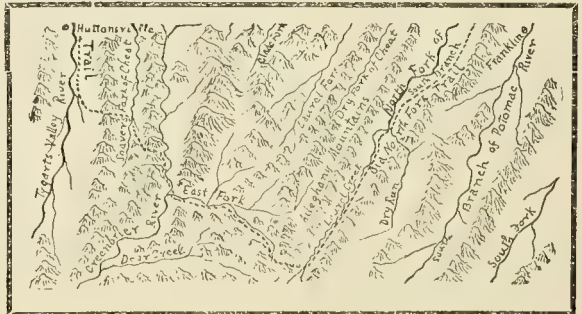 Huttonsville
Trail
Tygarts Valley River
Shavers Fork of Cheat
Greenbrier River
Deer Creek
East Fork
Laurel Fork
Dry Fork of Cheat
Alleghany Mountains
North Fork of
South Branch
Old North Fork Trail
Dry Run
Franklin
South Branch of Potomac River
South Fork